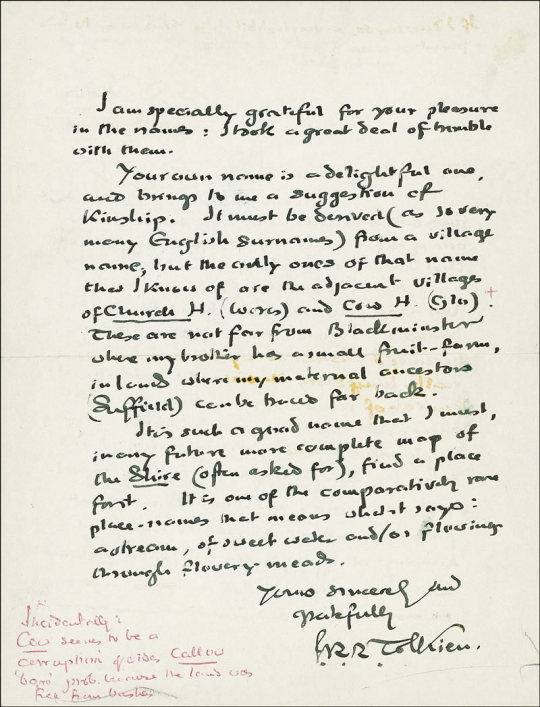 I am specially grateful for your pleasure
in the names: I took a great deal of trouble
with them.
Your own name is a delightful one,
and brings to me a suggestion of
Kinship. It must be derived (as so very
many English surnames) from a village
name, but the only ones of that name
that I know of are the adjacent villages
of Church H. (Worcs) and Cow H. (Glos) . +
These are not far from Blackminster
where my brother has a small fruit-farm,
in land where my maternal ancestors
(Suffield) can be traced far back.
It is such a good name that I must,
in any future more complete map of
the Shire (often asked for), find a place
for it. It is one of the comparatively rare
place-names that means what it says:
a stream, of sweet water and/or flowing
through flowery meads.
Yours sincerely and
gratefully
J.R.R. Tolkien.
Incidentally:
Cow seems to be a
corruption of older Callow
'bare' prob. because the land was
free from bushes